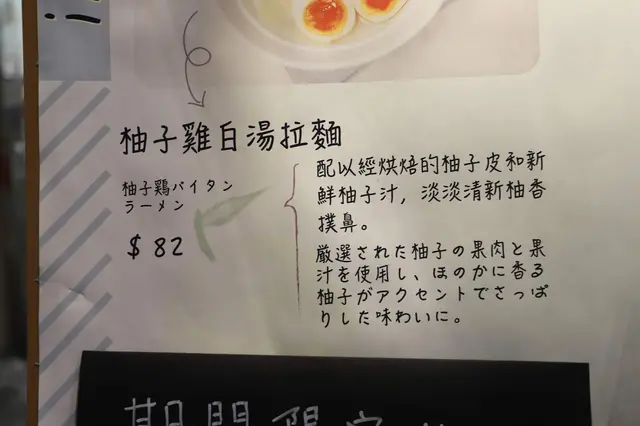 柚子雞白湯拉麵
柚子鶏パイタン
ラーメン
$ 82
配以經烘焙的柚子皮和新
鮮柚子汁，淡淡清新柚香
撲鼻。
厳選された柚子の果肉と果
汁を使用し、ほのかに香る
柚子がアクセントでさっぱ
りした味わいに。
期間限定